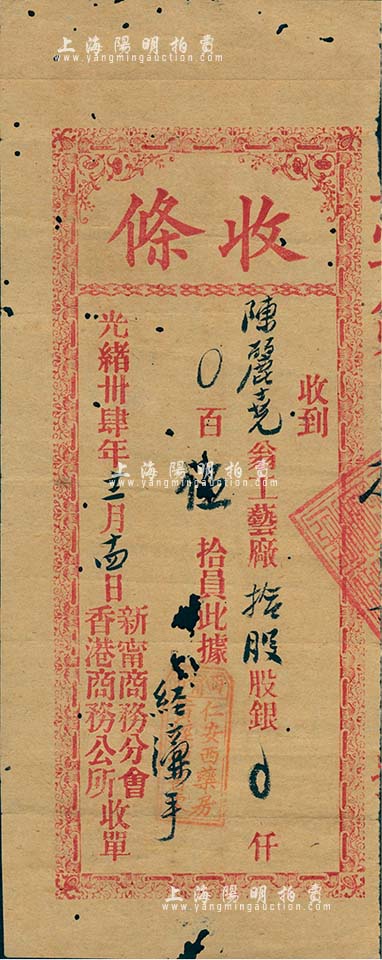 上海陽明拍賣
www.yangmingauction.com
收條
收到
陳麗堯翁工藝廠拾股股銀0仟
0百壹拾員此據
經濂手
仁安西藥房
光緒卅肆年三月十四日
新甯商務分會
香港商務公所收單
上海陽明拍賣
www.yangmingauction.com
上海陽明拍賣
www.yangmingauction.com